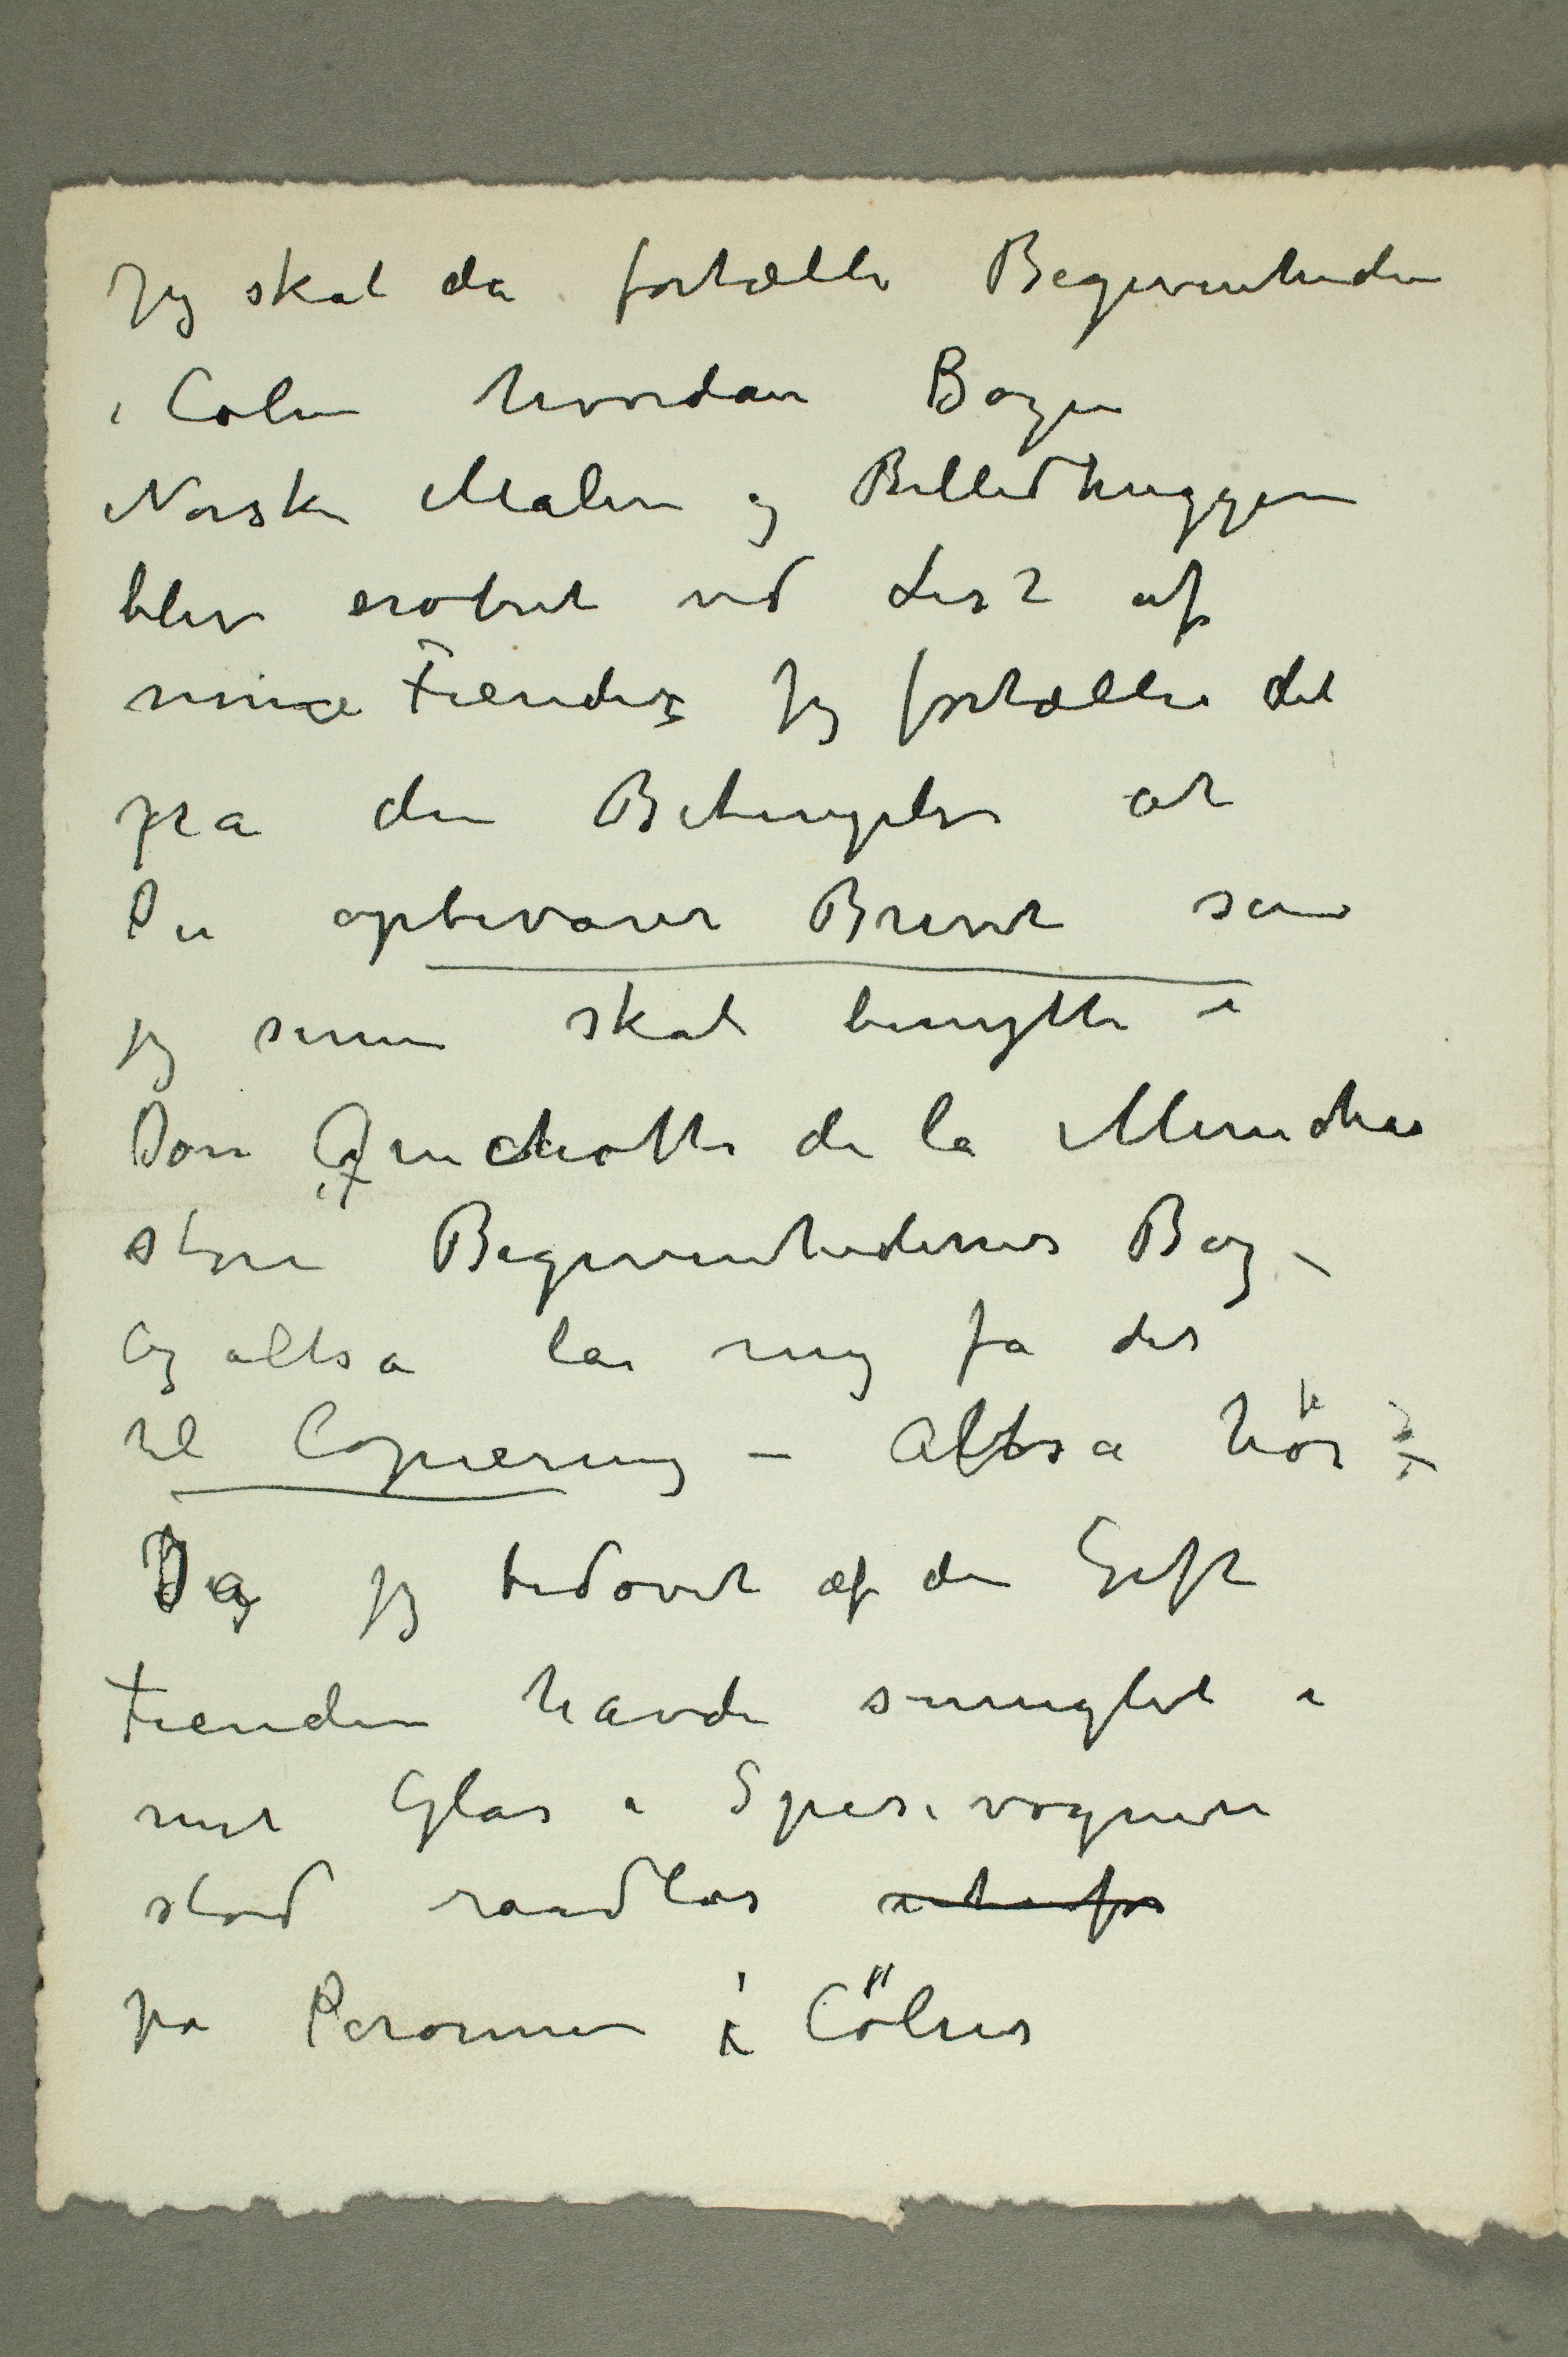 Jeg skal da fortælle Begivenheden
i Cøln hvordan Bogen
Norske Malere og Billedhuggere
blev erobret ved List af
mine Fiender Jeg fortæller det
paa den Betingelse at
Du opbevarer Brevet som
jeg senere skal benytte i
Don Quichotte de la Munchas
store Begivenhedernes Bog –
Og altså lar mig få det
til Copiering – Altså hör:
Da jeg bedøvet af den Gift
Fienden havde smuglet i
mit Glas i Spisevognen
stod raadløs
på Peronnen i Cölner